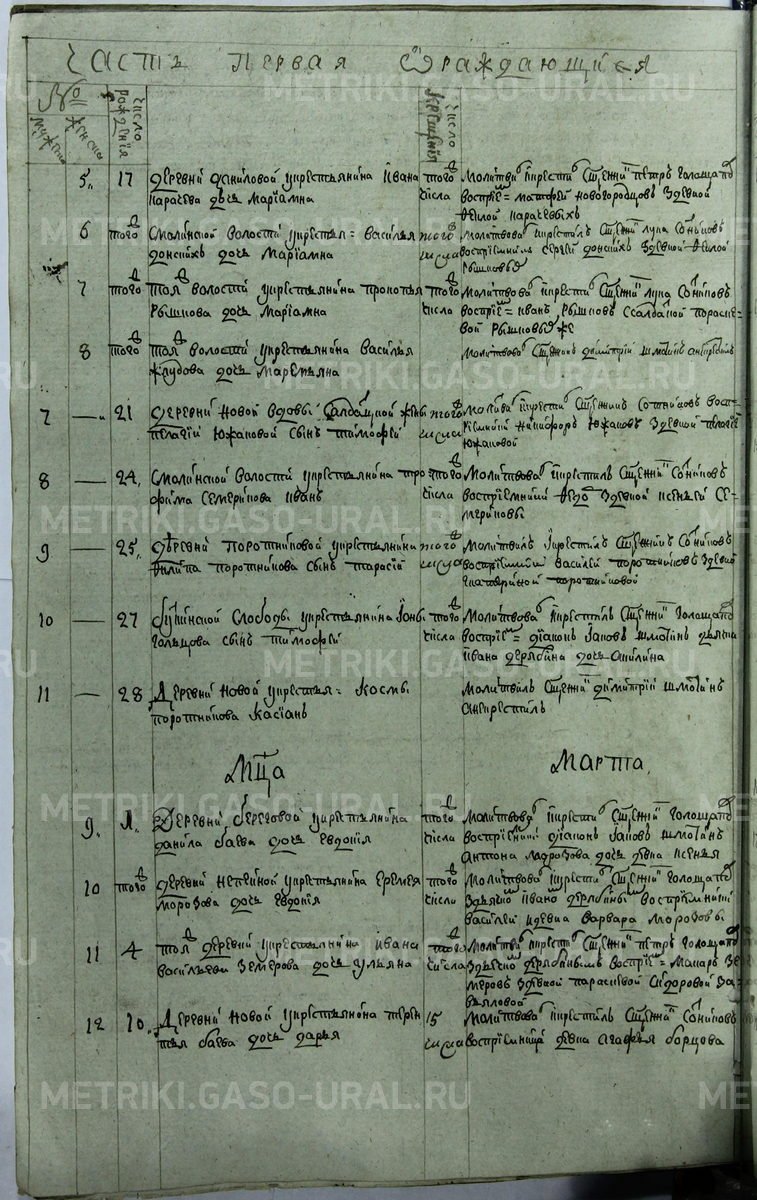 Часть первая ѡ раждающихся
№
мужеска
женска
число рождения
число крещения
5 17 Деревни Даниловой у крестьянина Ивана
Карачева дочь Мариамна
того числа
Молитвил и крестил священник Петръ Голощапов
восприем= Матфей Новогородцовъ з девкой
Феклой Карачевыхъ
6 того Смолинской волости у крестья= Василья
Донскихъ дочь Мариамна
того числа
Молитвовал и крестилъ священник Лука Сотниковъ
восприемникъ Сергей Донскихъ з девкой Феклой
Рышковы
7 того тоя волости у крестьянина Прокопья
Рышкова дочь Мариамна
того числа
Молитвовал и крестил священник Лука Сотниковъ
восприем= Иванъ Рышковъ с салдаткой
Рышковы же
8 того тоя волости у крестьянина Василья
дочь Маремьяна
Молитвовал священникъ Димитрий Шмотинъ
7 — 21 Деревни Новой вдовы салдатской жены
Пелагии Южаковой сынъ Тимофей
того числа
Молитвил и крестил священникъ Сотниковъ
восприемникъ Никифоръ Южаковъ з девкой
Южаковой
8 — 24 Смолинской волости у крестьянина Тро
фима Семерикова Иванъ
того числа
Молитвовал и крестилъ священник Сотниковъ
восприемники з девкой Ксенией Се
мериковы
9 — 25 Деревни Поротниковой у крестьянина
Филипа Поротникова сынъ Тарасий
того числа
Молитвилъ и крестилъ священникъ Сотниковъ
восприемники Василей Поротниковъ з девкой
Екатериной Поротниковой
10 — 27 слободы у крестьянина Ионы
Гольцова сынъ Тимофей
того числа
Молитвовал и крестилъ священник Голощапов
восприем= диаконъ Иаковъ Шмотинъ дьячка
Ивана Дерябина дочь Акилина
11 — 28 Деревни Новой у крестья= Космы
Поротникова Касианъ
Молитвилъ священник Димитрий Шмотинъ
а не крестилъ
Мца Марта
9 1 Деревни Береговой у крестьянина
Данила Баева дочь Евдокия
того числа
Молитвовал и крестил священник Голощапов
восприемники диаконъ Иаковъ Шмотинъ
Антона Морозова дочь девка Ксенья
10 того Деревни у крестьянина Еремея
Морозова дочь Евдокия
того числа
Молитвовал и крестил священник Голощапов
з дьячком Иваном Дерябиным восприемники
Василей и девка Варвара Морозовы
11 4 тоя деревни у крестьянина Ивана
Васильева Земерова дочь Ульяна
того числа
Молитвил и крестил священник Петръ Голощапов
з дьячком Дерябинымъ восприем= Макаръ Зе
меровъ з девкой Параскевой Сидоровой За
вьяловой
12 10 Деревни Новой у крестьянина Терен
тья Баева дочь Дарья
15 числа
Молитвовал и крестилъ священник Сотниковъ
восприемница девка Агафья Борцова
METRIKI.GASO-URAL.RU